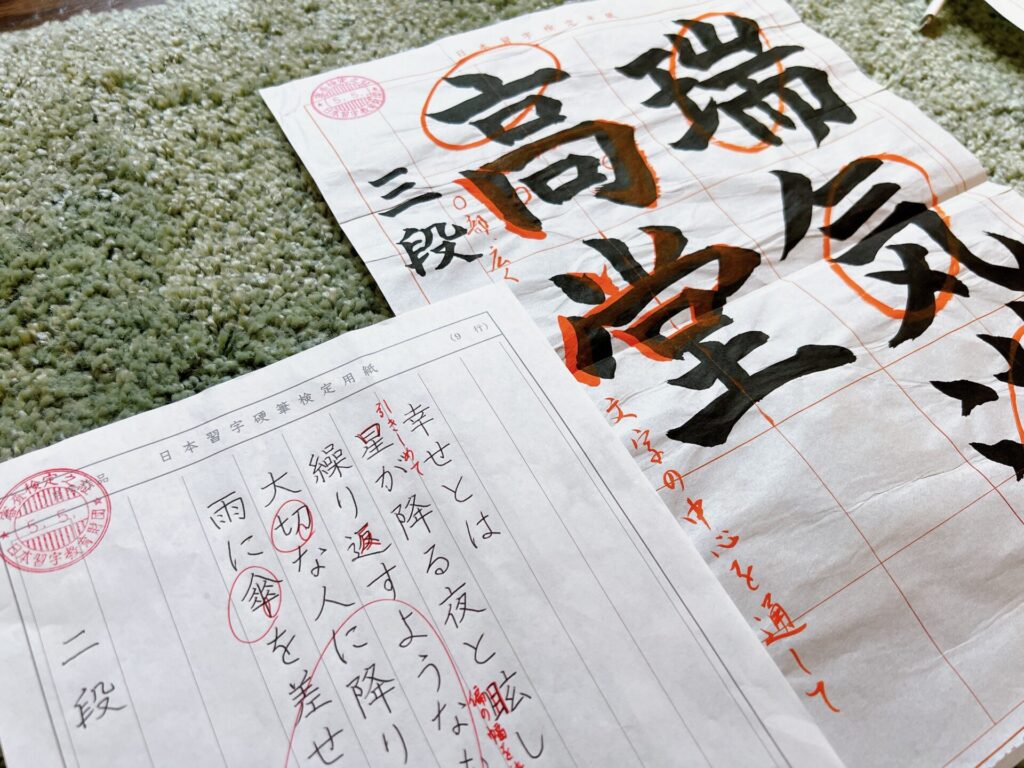 日本習字検定用紙
瑞気
高堂
三段
文字の中心を通して
(9行)
日本習字硬筆検定用紙
幸せとは
星が降る夜と眩し
引きしめて
偏の幅を
繰り返すような
大切な人に降り
雨に傘を差せ
二段
5.5.
日本習字教育財団